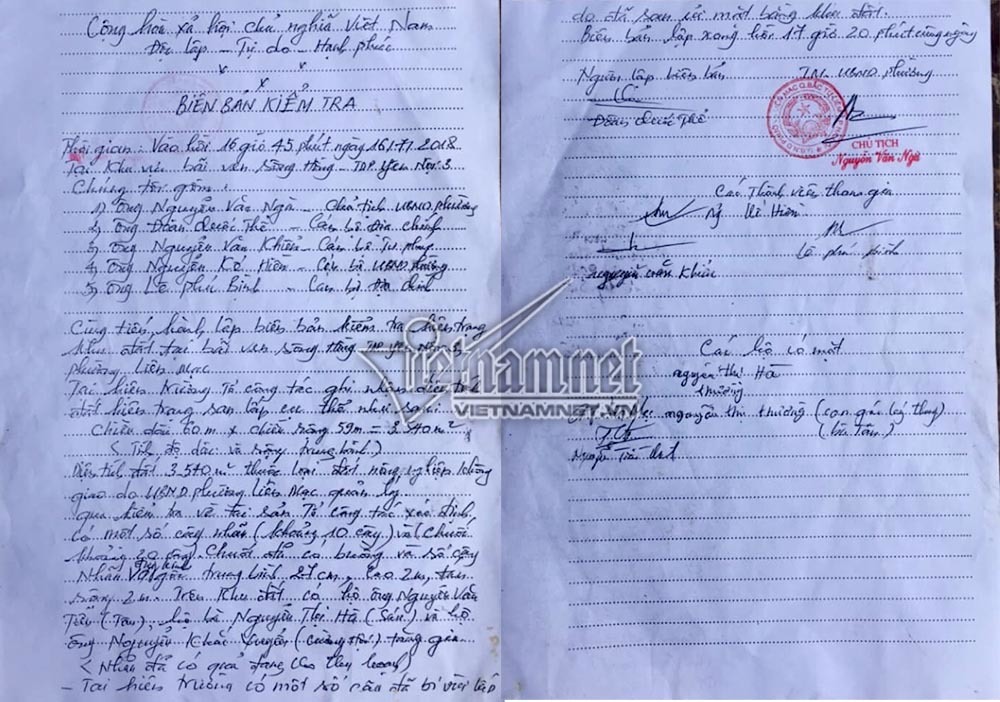 Cộng hòa xã hội chủ nghĩa Việt Nam
Độc lập – Tự do – Hạnh phúc
BIÊN BẢN KIỂM TRA
Thời gian: Vào hồi 16 giờ 45 phút ngày 16/7/2018
Tại khu vực bãi ven sông Hồng – TDP Yên Nội 3.
Chúng tôi gồm:
1) Ông Nguyễn Văn Ngà – Chủ tịch UBND phường
2) Ông Đoàn Quốc Thể – Cán bộ địa chính
3) Ông Nguyễn Văn Khiển – Cán bộ Tư pháp
4) Ông Nguyễn Hiền – Cán bộ UBND phường
5) Ông Lê Phú Bình – Cán bộ địa chính
Cùng tiến hành lập biên bản kiểm tra hiện trạng
khu đất tại bãi ven sông Hồng TDP Yên Nội 3,
phường Liên Mạc
Tại hiện trường Tổ công tác ghi nhận diện tích
đất hiện trạng san lấp cụ thể như sau:
Chiều dài 60m x chiều rộng 59m = 3.540m²
(Tính độ dài và rộng trung bình)
Diện tích đất 3.540m² thuộc loại đất nông nghiệp không
giao do UBND phường Liên Mạc quản lý
qua kiểm tra về tài sản Tổ công tác xác định
có một số cây nhãn (khoảng 10 cây) và (chuối
khoảng 20 cây) Chuối đã có buồng và số cây
Nhãn đường kính gốc trung bình 27cm, cao 2m, tán
rộng 2m. Trên khu đất có hộ ông Nguyễn Văn
Tiến (Tâm), hộ bà Nguyễn Thị Hà (Sán) và hộ
ông Nguyễn Khắc tăng gia
(Nhãn đã có quả đang cho thu hoạch)
– Tại hiện trường có một số cây đã bị vùi lấp
do đã san ủi mặt bằng khu đất.
Biên bản lập xong hồi 17 giờ 20 phút cùng ngày
Người lập biên bản
T.M UBND phường
Đoàn Quốc Thể
CHỦ TỊCH
Nguyễn Văn Ngà
Các thành viên tham gia
Hiền
Lê Phú Bình
Nguyễn Văn Khiển
Các hộ có mặt
Nguyễn Thị Hà
Thường
Nguyễn Thị Thường (con gái
(bà Tâm)
Nguyễn Tiến
Vietnamnet
VIETNAMNET.VN